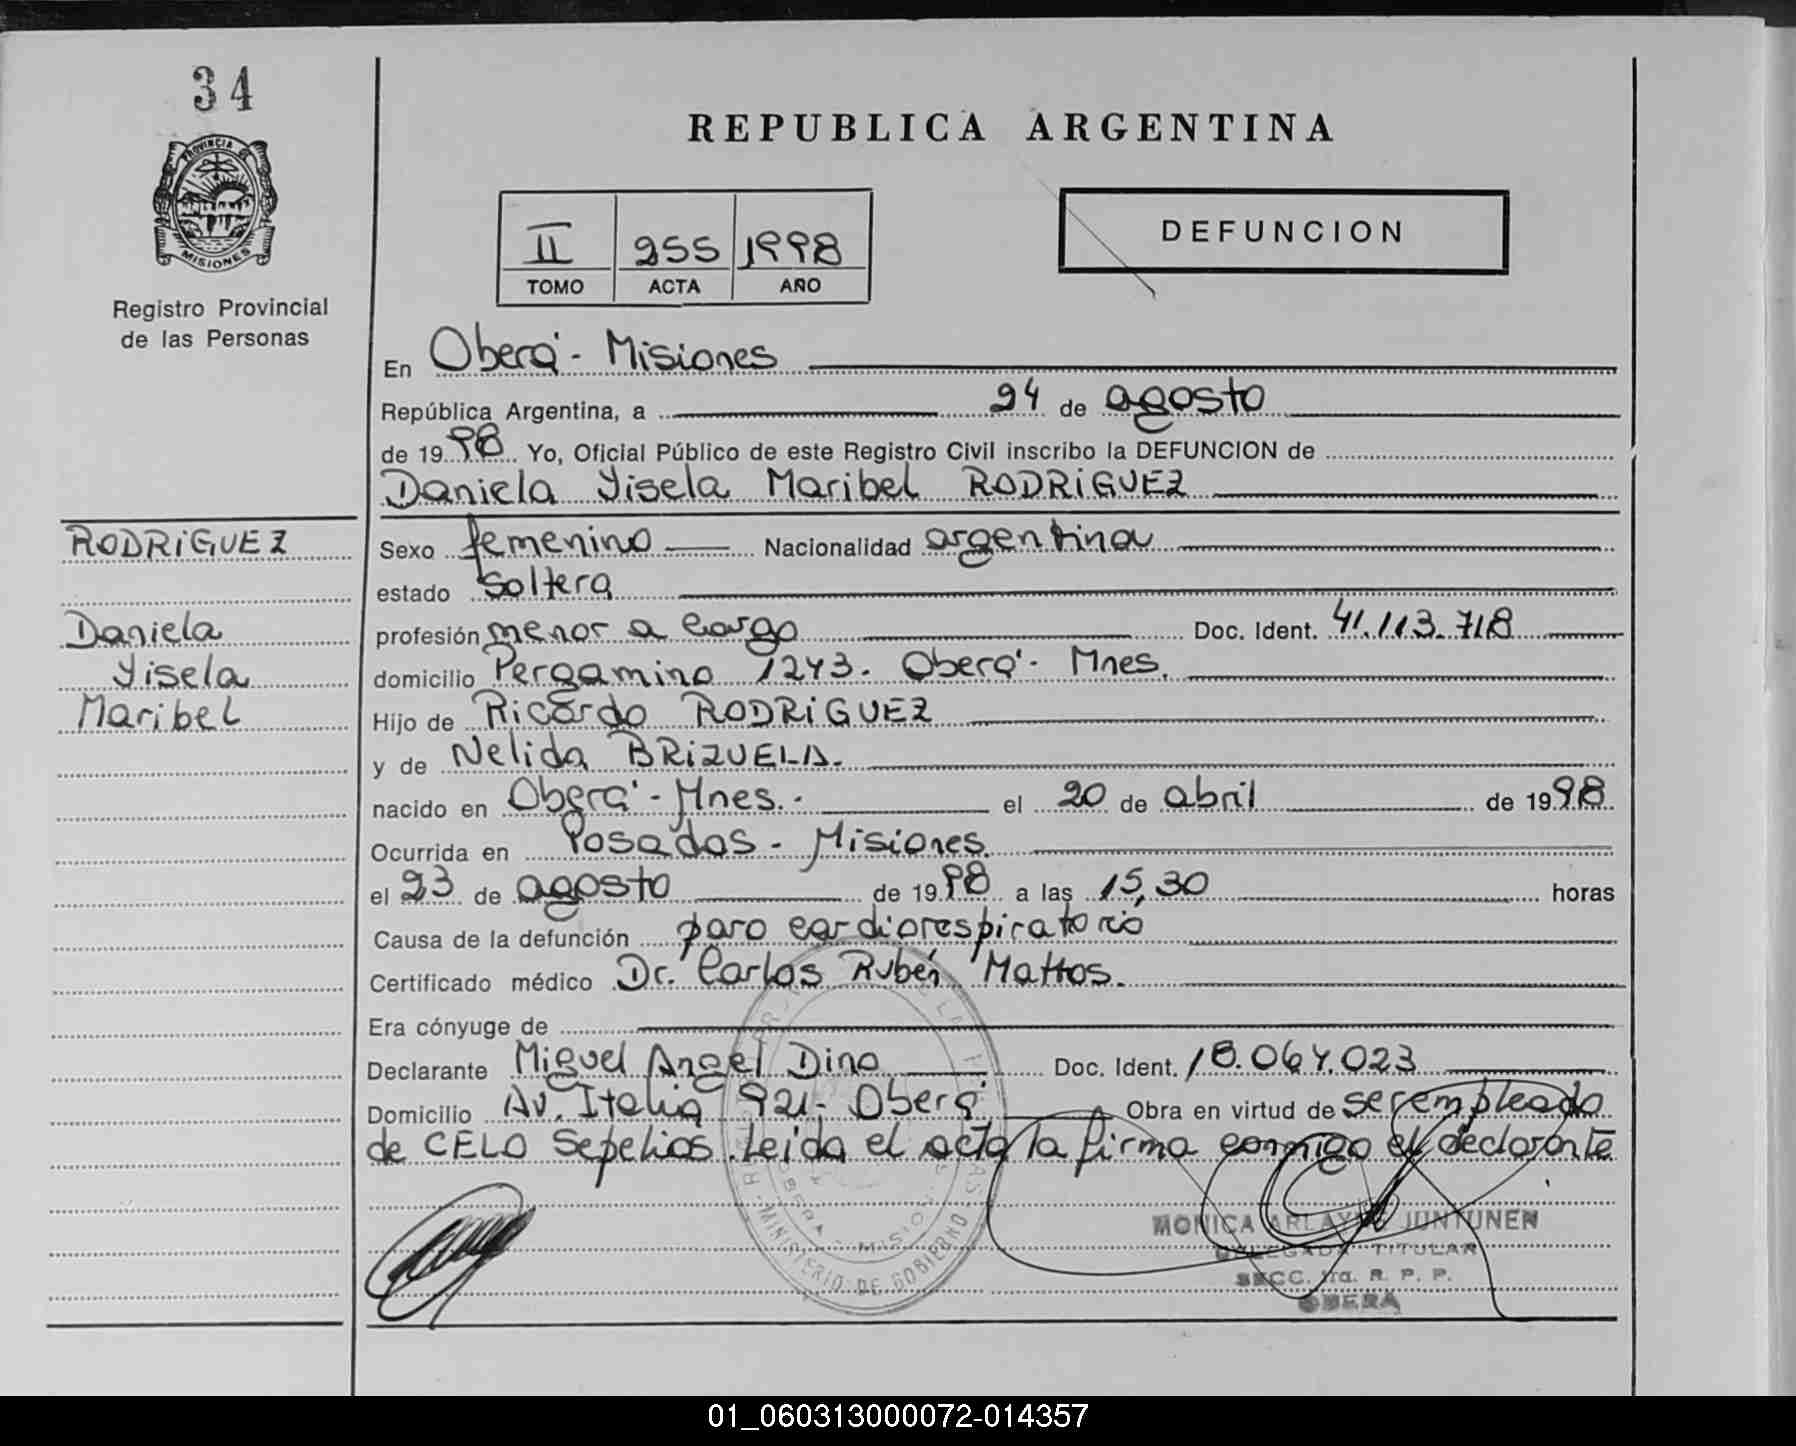 34
PROVINCIA DE
MISIONES
Registro Provincial
de las Personas
REPUBLICA ARGENTINA
II 255 1998
TOMO ACTA AÑO
DEFUNCION
En Oberá - Misiones
República Argentina, a 24 de agosto
de 1998 Yo, Oficial Público de este Registro Civil inscribo la DEFUNCION de
Daniela Yisela Maribel RODRIGUEZ
RODRIGUEZ
Daniela
Yisela
Maribel
Sexo femenino Nacionalidad argentina
estado soltera
profesión menor a cargo Doc. Ident. 41.113.718
domicilio Pergamino 1243. Oberá - Mnes.
Hijo de Ricardo RODRIGUEZ
y de Nelida BRIZUELA.
nacido en Oberá - Mnes. - el 20 de abril de 1998
Ocurrida en Posadas - Misiones.
el 23 de agosto de 1998 a las 15,30 horas
Causa de la defunción paro cardiorespiratorio
Certificado médico Dr. Carlos Rubén Mattos.
Era cónyuge de
Declarante Miguel Angel Dino Doc. Ident. 18.064.023
Domicilio Av. Italia 921 - Oberá Obra en virtud de ser empleado
de CELO Sepelios. Leida el acta la firma conmigo el declarante
MINISTERIO DE GOBIERNO
OBERA - MISIONES
MONICA JUNTUNEN
DELEGADA TITULAR
SECC. 1ra. R. P. P.
OBERA
01_060313000072-014357